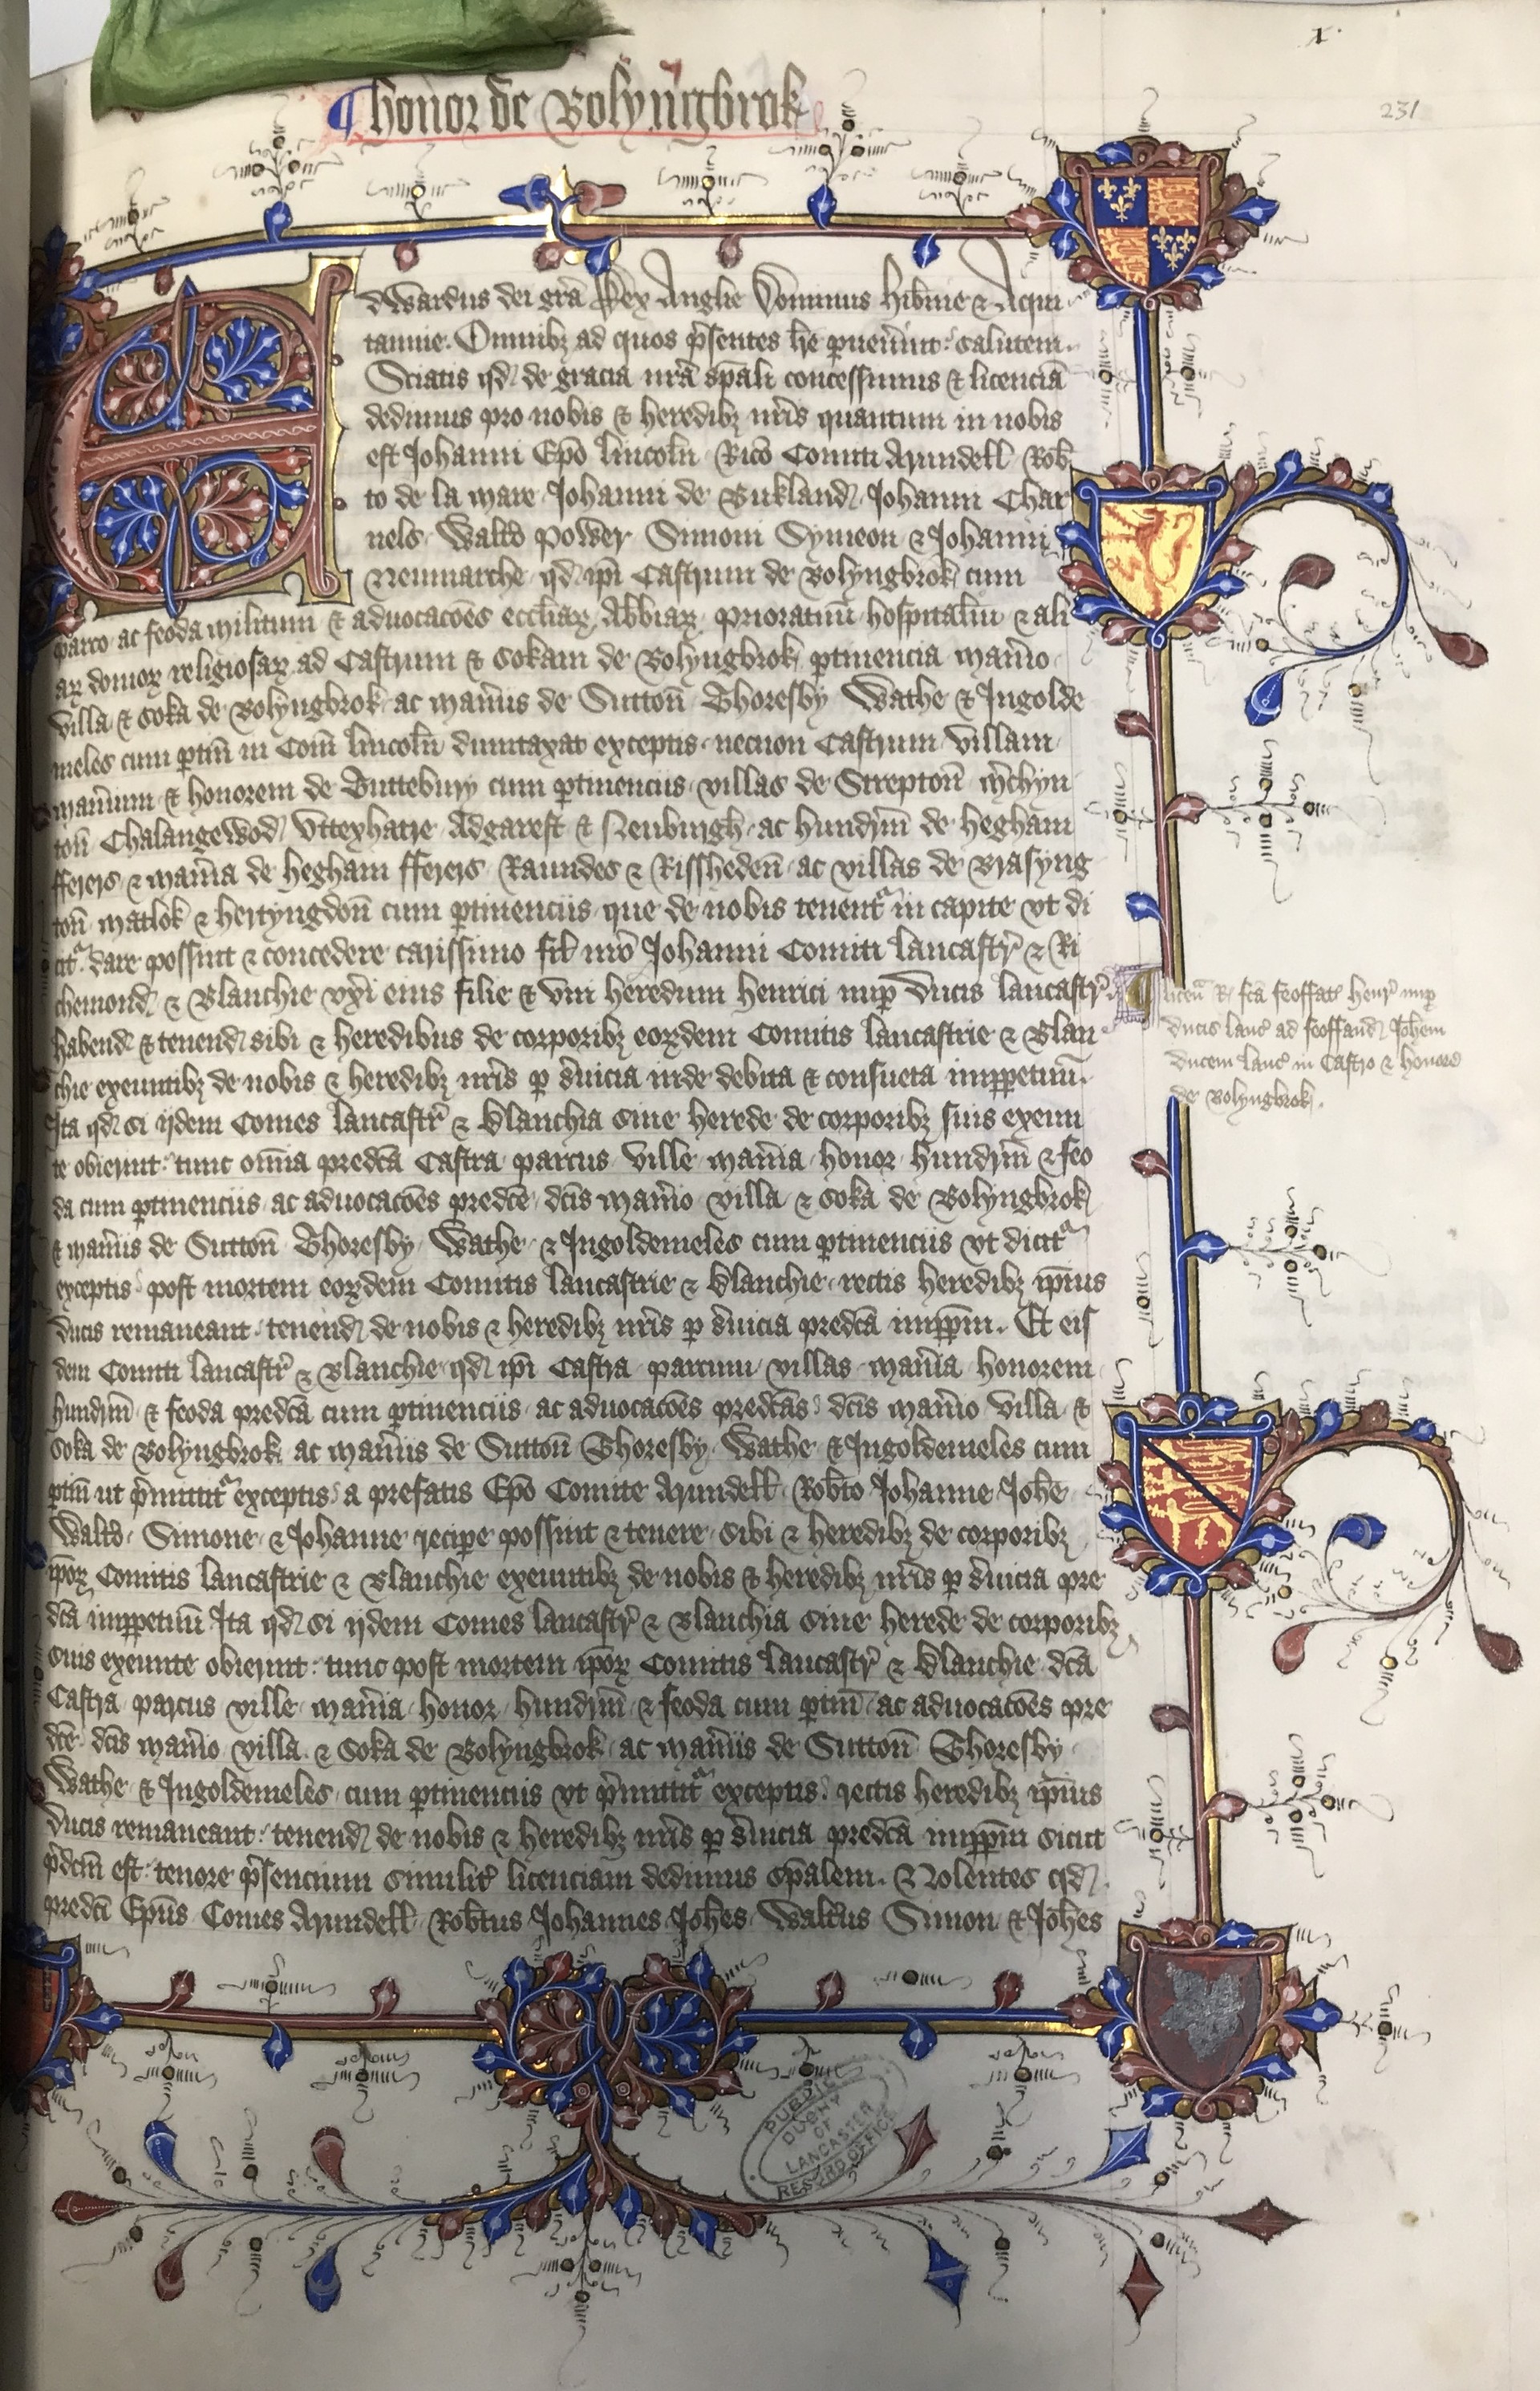 x.
231
¶ honor de Bolyngbrok
Edwardus dei grã Rex Anglie Dominus Hib̃nie & Aqui
tannie. Omnibꝫ ad quos p̃sentes l̃re puen̄int salutem.
Sciatis qd̃ de gracia nr̃a sp̃ali concessimus & licenciã
dedimus pro nobis & heredibꝫ nr̃is quantum in nobis
est Johanni Ep̃o Lincoln̄ Ric̃o Comiti Arundell Rob̃
to de la mare Johanni de Bukland Johanni Char
nels Walt̃o Power Simoni Symeon & Johanni
Neumarche qd̃ ip̃i Castrum de Bolyngbrok cum
parco ac feoda militum & aduocac̃oes eccliaꝝ Abbiaꝝ prioratuū hospitaliū & ali
aꝝ domoꝝ religiosaꝝ ad Castrum & Sokam de Bolyngbrok ꝑtinencia man̄io
villa & Soka de Bolyngbrok ac man̄iis de Sutton̄ Thoresby Wathe & Ingolde
meles cum ꝑtin̄ in Com̄ Lincoln̄ dumtaxat exceptis necnon Castrum villam
man̄ium & honorem de Tuttebury cum ꝑtinenciis villas de Strepton̄
ton̄ Chalangewod Uttexhatre Adgarest & Neuburgh ac hundr̄m de Hegham
fferers & man̄ia de Hegham fferers Raundes & Risssheden̄ ac villas de Brasyng
ton̄ Matlok & Hertyngdon̄ cum ꝑtinenciis que de nobis tenentᵃ in capite vt di
citᵃ dare possint & concedere carissimo fil̃ nr̃o Johanni Comiti Lancastr̃ & Ri
chemond & Blanchie vx̃i eius filie & vni heredum Henrici nuꝑ Ducis Lancastr̃
habend & tenend sibi & heredibus de corporibꝫ eoꝝdem Comitis Lancastrie & Blan
chie exeuntibꝫ de nobis & heredibꝫ nr̃is ꝑ s̃uicia inde debita & consueta imꝑpetuū.
Ita qd̃ si ijdem Comes Lancastr̃ & Blanchia sine herede de corporibꝫ suis exeun
te obierint tunc om̃ia predc̃a Castra parcus ville man̄ia honor hundr̄m & feo
da cum ꝑtinenciis ac aduocac̃oes predc̃e dc̃is man̄io villa & Soka de Bolyngbrok
& man̄iis de Sutton̄ Thoresby Wathe & Ingoldemeles cum ꝑtinenciis vt dicitᵃ
exceptis post mortem eoꝝdem Comitis Lancastrie & Blanchie rectis heredibꝫ ip̃ius
Ducis remaneant tenend de nobis & heredibꝫ nr̃is ꝑ s̃uicia predc̃a imꝑpm̄. Et eis
dem Comiti Lancastr̃ & Blanchie qd̃ ip̃i Castra parcum villas man̄ia honorem
hundr̄m & feoda predc̃a cum ꝑtinenciis ac aduocac̃oes predc̃as dc̃is man̄io villa &
Soka de Bolyngbrok ac man̄iis de Sutton̄ Thoresby Wathe & Ingoldemeles cum
ꝑtin̄ ut p̃mittitᵃ exceptis a prefatis Ep̃o Comite Arundell Rob̃to Johanne Joh̃e
Walt̃o Simone & Johanne reciꝑe possint & tenere sibi & heredibꝫ de corporibꝫ
ip̃oꝝ Comitis Lancastrie & Blanchie exeuntibꝫ de nobis & heredibꝫ nr̃is ꝑ s̃uicia pre
dc̃a imꝑpetuū Ita qd̃ si ijdem Comes Lancastr̃ & Blanchia sine herede de corporibꝫ
suis exeunte obierint tunc post mortem ip̃oꝝ Comitis Lancastr̃ & Blanchie dc̃a
Castra parcus ville man̄ia honor hundr̄m & feoda cum ꝑtin̄ ac aduocac̃oes pre
dc̃e dc̃is man̄io villa & Soka de Bolyngbrok ac man̄iis de Sutton̄ Thoresby
Wathe & Ingoldemeles cum ꝑtinenciis vt p̃mittitᵃ exceptis rectis heredibꝫ ip̃ius
Ducis remaneant tenend de nobis & heredibꝫ nr̃is ꝑ s̃uicia predc̃a imꝑpm̄ sicut
p̃dcm̄ est tenore p̃sencium similit̃ licenciam dedimus sp̃alem. Nolentes qd̃
predc̃i Ep̃us Comes Arundell Rob̃tus Johannes Joh̃es Walt̃us Simon & Joh̃es
licen̄ R fc̃a feoffat̃ Henr̃ nuꝑ
ducis Lanc̃ ad feoffand Joh̃em
ducem Lanc̃ in Castro & honore
de Bolyngbrok.
PUBLIC
DUCHY
OF
LANCASTER
RECORD OFFICE